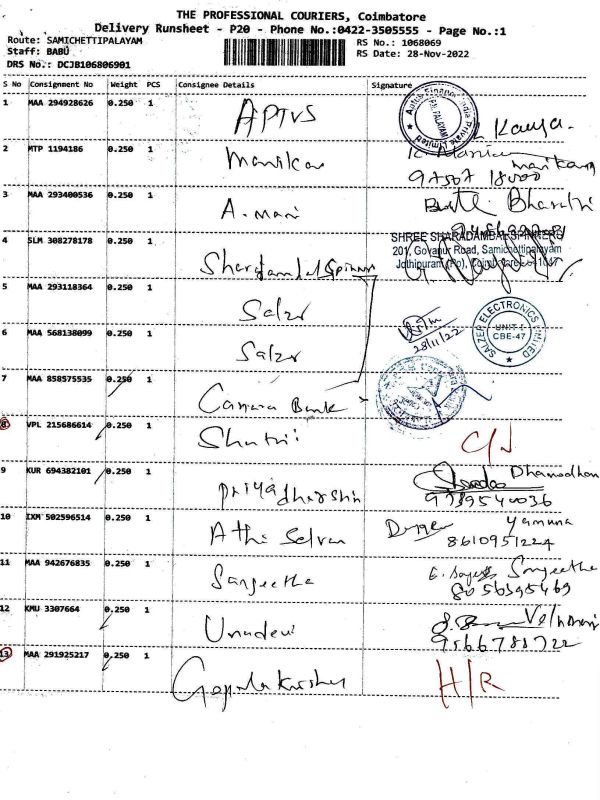 THE PROFESSIONAL COURIERS, Coimbatore
Delivery Runsheet - P20 - Phone No.:0422-3505555 - Page No.:1
Route: SAMICHETTIPALAYAM RS No.: 1068069
Staff: BABU RS Date: 28-Nov-2022
DRS No.: DCJB106806901
S No Consignment No Weight PCS Consignee Details Signature
1 MAA 294928626 0.250 1 APTUS Kavya.
2 MTP 1194186 0.250 1 Manikan
97507 18000
3 MAA 293400536 0.250 1 A. Mani Bharathi
SHREE SHARADAMBAL SPINNERS
201, Govanur Road, Samichettipalayam
Jothipuram (Po), Coimbatore
4 SLM 308278178 0.250 1 Sharadambal Spinners
5 MAA 293118364 0.250 1 Salzer
28/11/22
SALZER ELECTRONICS LIMITED
UNIT-I
CBE-47
6 MAA 568138099 0.250 1 Salzer
7 MAA 858575535 0.250 1 Canara Bank
8 VPL 215686614 0.250 1
9 KUR 694382101 0.250 1 Priyadharshin Dhamodhan
9789540036
10 IXM 502596514 0.250 1 Athi Selvan Yamuna
8610951224
11 MAA 942676835 0.250 1 Sangeetha Sangeetha
8056395469
12 KMU 3307664 0.250 1 Umadevi
9566788722
13 MAA 291925217 0.250 1 Gopalakrishnan H/R